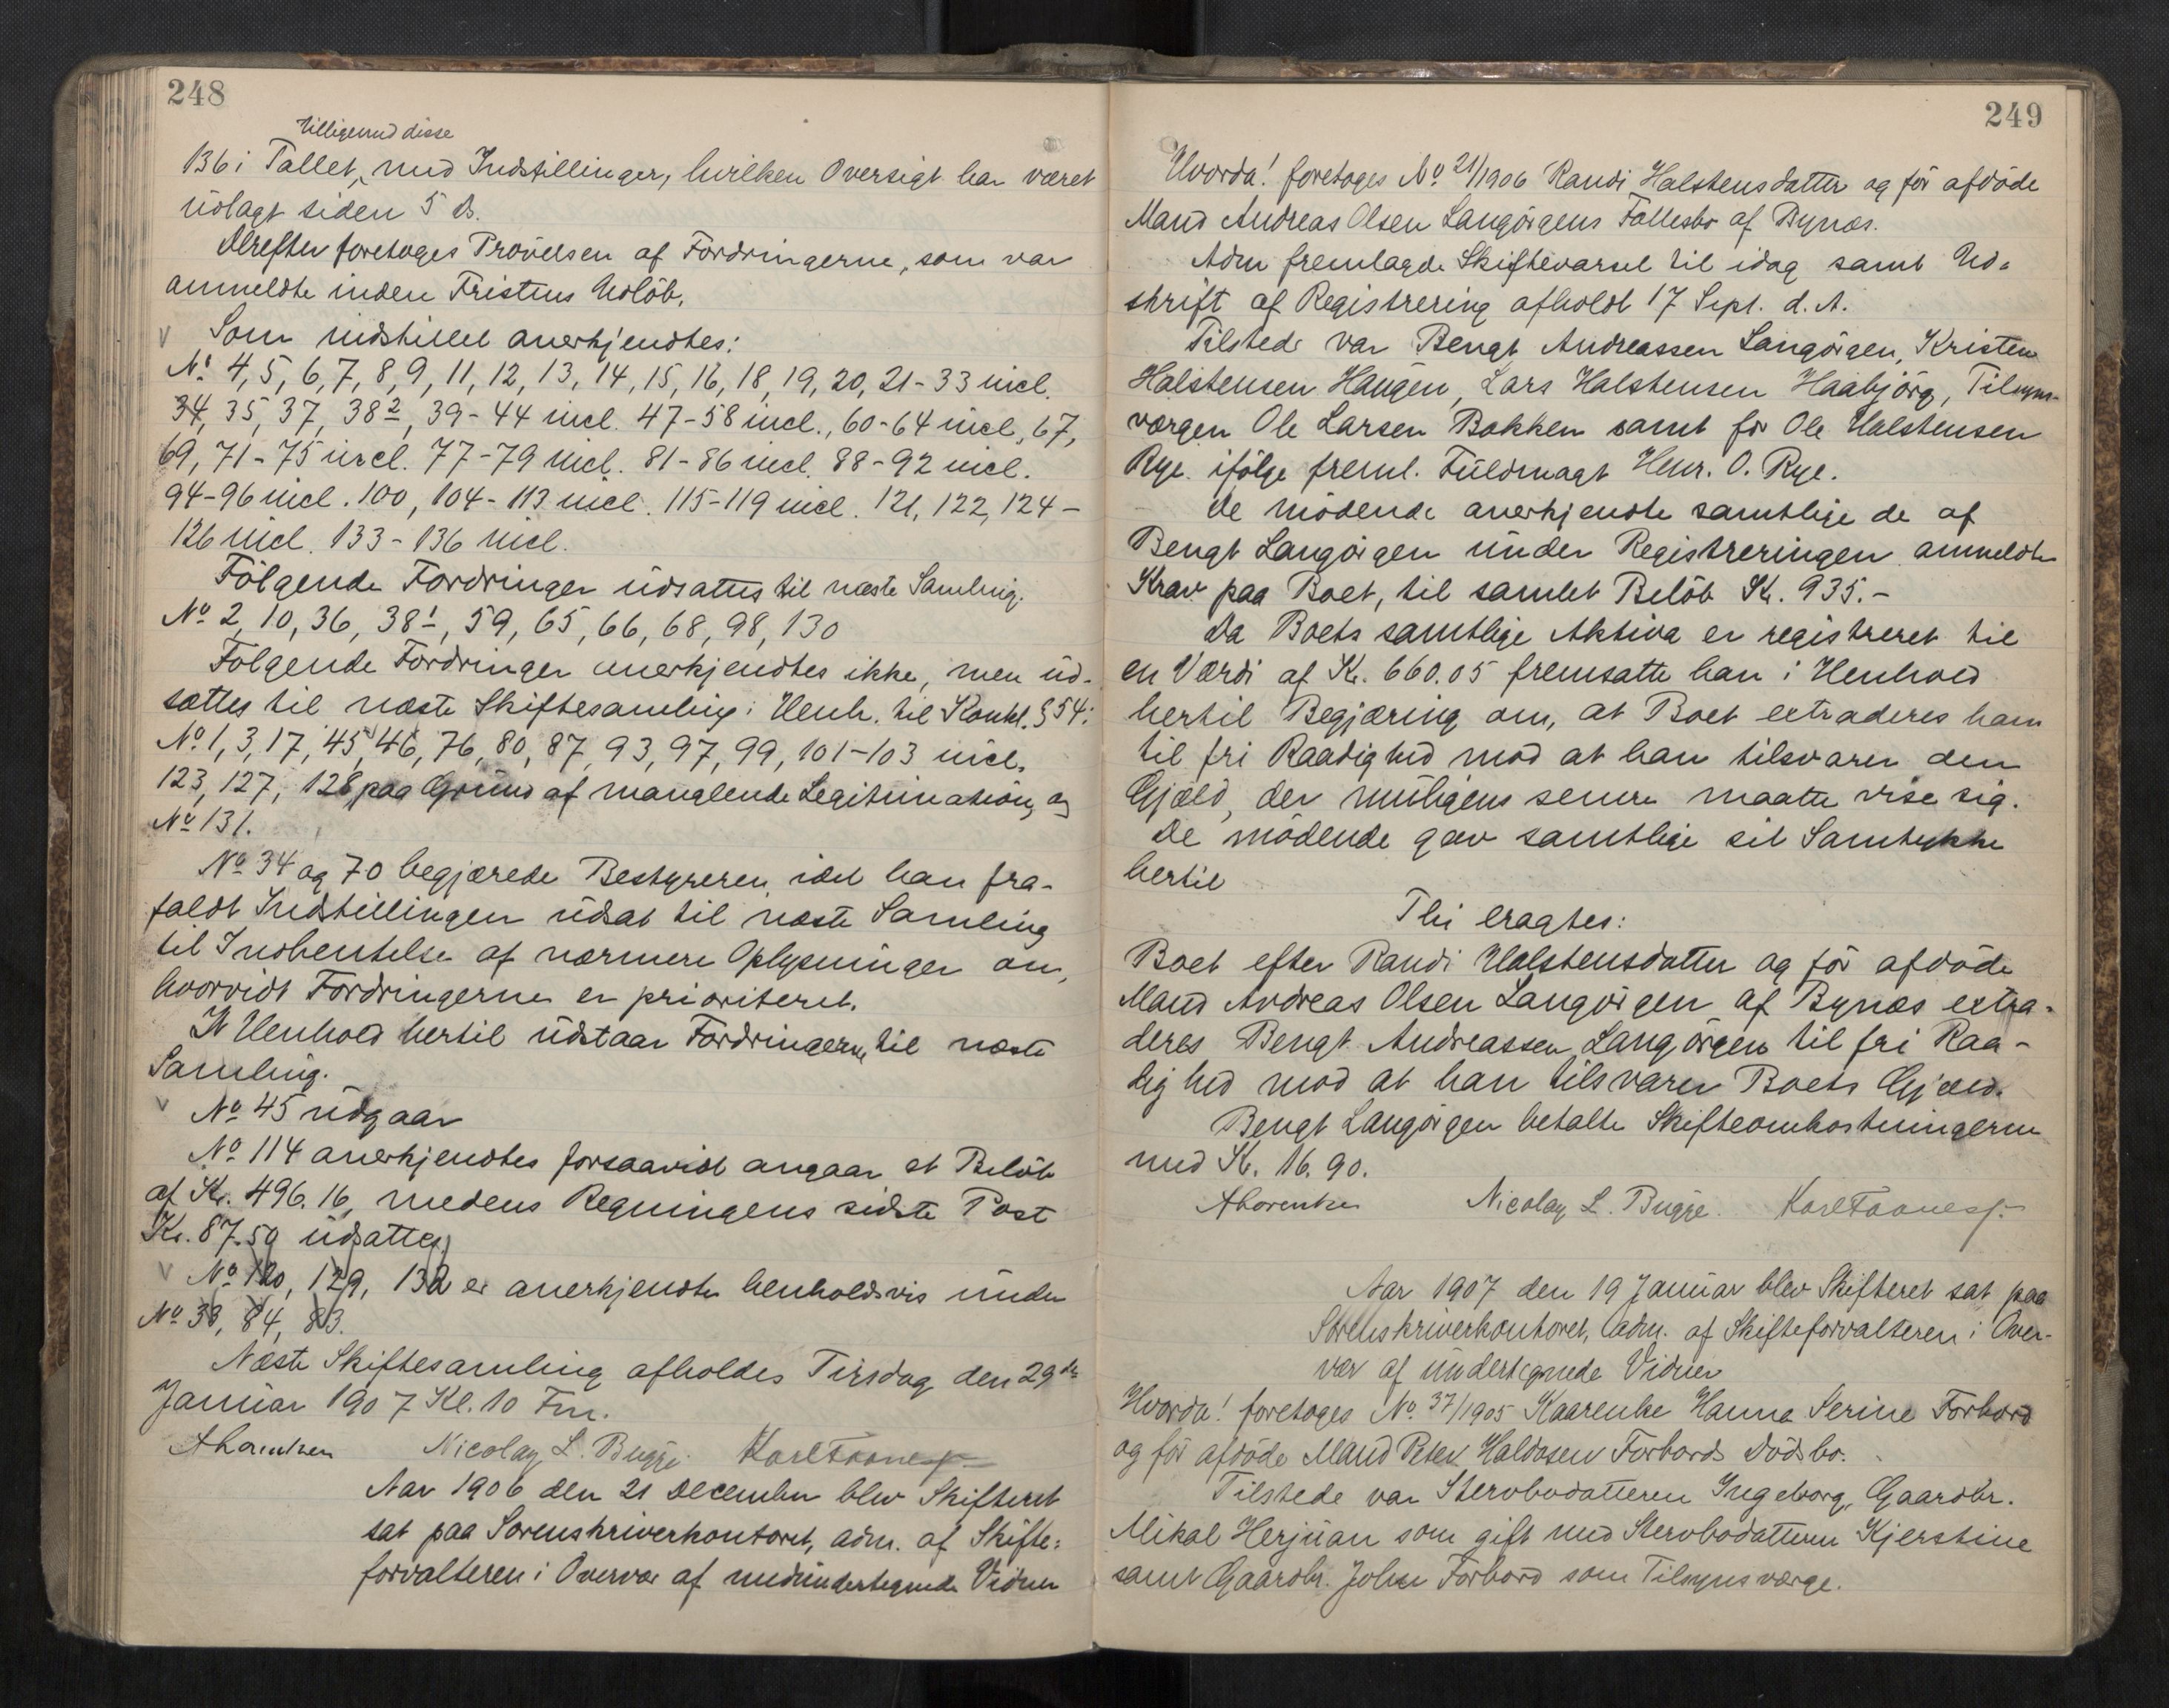 248
tilligemed disse
136 i Tallet, med Indstillinger, hvilken Oversigt har været
udlagt siden 5 ds.
Derefter foretoges Prøvelsen af Fordringerne, som var
anmeldte inden Fristens Udløb.
V Som indstillet anerkjendtes:
No 4, 5, 6, 7, 8, 9, 11, 12, 13, 14, 15, 16, 18, 19, 20, 21-33 incl.
34, 35, 37, 38², 39-44 incl. 47-58 incl., 60-64 incl., 67,
69, 71-75 incl. 77-79 incl. 81-86 incl. 88-92 incl.
94-96 incl. 100, 104-113 incl. 115-119 incl. 121, 122, 124-
126 incl. 133-136 incl.
Følgende Fordringer udsattes til næste Samling.
No 2, 10, 36, 38¹, 59, 65, 66, 68, 98, 130
Følgende Fordringer anerkjendtes ikke, men ud-
sættes til næste Skiftesamling i Henh. til Konkl. § 54:
No 1, 3, 17, 45, 46, 76, 80, 87, 93, 97, 99, 101-103 incl.
123, 127, 128 paa Grund af manglende Legitimation, og
No 131.
No 34 og 70 begjærede Bestyreren, idet han fra-
faldt Indstillingen udsat til næste Samling
til Indhentelse af nærmere Oplysninger om,
hvorvidt Fordringerne er prioriteret.
I Henhold hertil udstaar Fordringerne til næste
Samling.
V No 45 udgaar
No 114 anerkjendtes forsaavidt angaar et Beløb
af Kr. 496.16, medens Regningens sidste Post
Kr. 87.50 udsattes
V No 120, 129, 132 er anerkjendte henholdsvis under
No 38, 84, 83.
Næste Skiftesamling afholdes Tirsdag den 29de
Januar 1907 Kl. 10 Fm.
ALorentzen Nicolay L. Bugge. Karl Faanes
Aar 1906 den 21 December blev Skifteret
sat paa Sorenskriverkontoret, adm. af Skifte-
forvalteren i Overvær af medundertegnede Vidner
249
Hvorda! foretoges No. 21/1906 Randi Halstensdatter og før afdøde
Mand Andreas Olsen Langørgens Fællesbo af Bynæs.
Adm fremlagde Skiftevarsel til idag samt Ud-
skrift af Registrering afholdt 17 Sept. d. A.
Tilstede var Bengt Andreassen Langørgen, Kristen
Halstensen Haugen, Lars Halstensen Haabjørg, Tilsyns-
værgen Ole Larsen Bakken samt for Ole Halstensen
Rye ifølge freml. Fuldmagt Henr. O. Rye.
De mødende anerkjendte samtlige de af
Bengt Langørgen under Registreringen anmeldte
Krav paa Boet, til samlet Beløb Kr. 935.-
Da Boets samtlige Aktiva er registreret til
en Værdi af Kr. 660.05 fremsatte han i Henhold
hertil Begjæring om, at Boet extraderes ham
til fri Raadighed mod at han tilsvarer den
Gjæld, der muligens senere maatte vise sig.
De mødende gav samtlige sit Samtykke
hertil
Thi eragtes:
Boet efter Randi Halstensdatter og før afdøde
Mand Andreas Olsen Langørgen af Bynæs extra-
deres Bengt Andreassen Langørgen til fri Raa-
dighed mod at han tilsvarer Boets Gjæld.
Bengt Langørgen betalte Skifteomkostningerne
med Kr. 16.90.
ALorentzen Nicolay L. Bugge. Karl Faanes
Aar 1907 den 19 Januar blev Skifteret sat paa
Sorenskriverkontoret, adm. af Skifteforvalteren i Over-
vær af undertegnede Vidner
Hvorda! foretoges No. 37/1905 Kaarenke Hanna Serine Forbord
og før afdøde Mand Peter Haldosen Forbords Dødsbo.
Tilstede var Stervbodatteren Ingeborg, Gaardbr.
Mikal Herjuan som gift med Stervbodatteren Kjerstine
samt Gaardbr. John Forbord som Tilsynsværge.